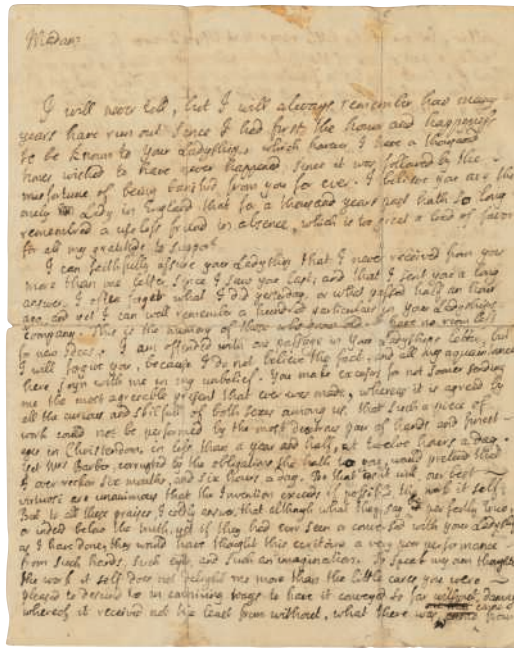 Madam
I will never tell, but I will always remember how many
years have run out since I had first the honor and happyness
to be known to your Ladyship, which honor I have a thousand
times wished to have never happened, since it was followed by the
misfortune of being banished from you for ever. I believe you are the
onely Lady in England that for a thousand years past hath so long
remembred a useless friend in absence, which is too great a load of favor
for all my gratitude to support.
I can faithfully assure your Ladyship that I never received from you
more than one letter since I saw you last; and that I sent you a long
answer. I often forget what I did yesterday, or what passed half an hour
ago and yet I can well remember a hundred particulars in your Ladyships
company. This is the memory of those who grow old. I have no room left
for new Ideas. I am offended with one passage in your Ladyships letter, but
I will forgive you, because I do not believe the fact, and all my acquaintance
here joyn with me in my unbelief. You make excuses for not sooner sending
me the most agreeable present that ever was made, whereas it is agreed by
all the curious and skilfull of both sexes among us, that such a piece of
work could not be performed by the most dextrous pair of hands and finest
eyes in Christendom, in less than a year and half, at twelve hours a day.
Yet Mrs Barber, corrupted by the obligations she hath to you, would pretend that
I over reckon six months, and six hours a day. Be that as it will our best
virtuosi are unanimous that the Invention exceeds if possible the work it self.
But to all these praises I coldly answer, that although what they say be perfectly true,
or indeed below the truth, yet if they had ever seen or conversed with your Ladyship
as I have done, they would have thought this escritoire a very poor performance
from such hands, such eyes, and such an imagination. To speak my own thoughts
the work it self does not delight me more than the little cares you were
pleased to descend to in contriving ways to have it conveyed so far without damage
whereof it received not the least from without, what there was from